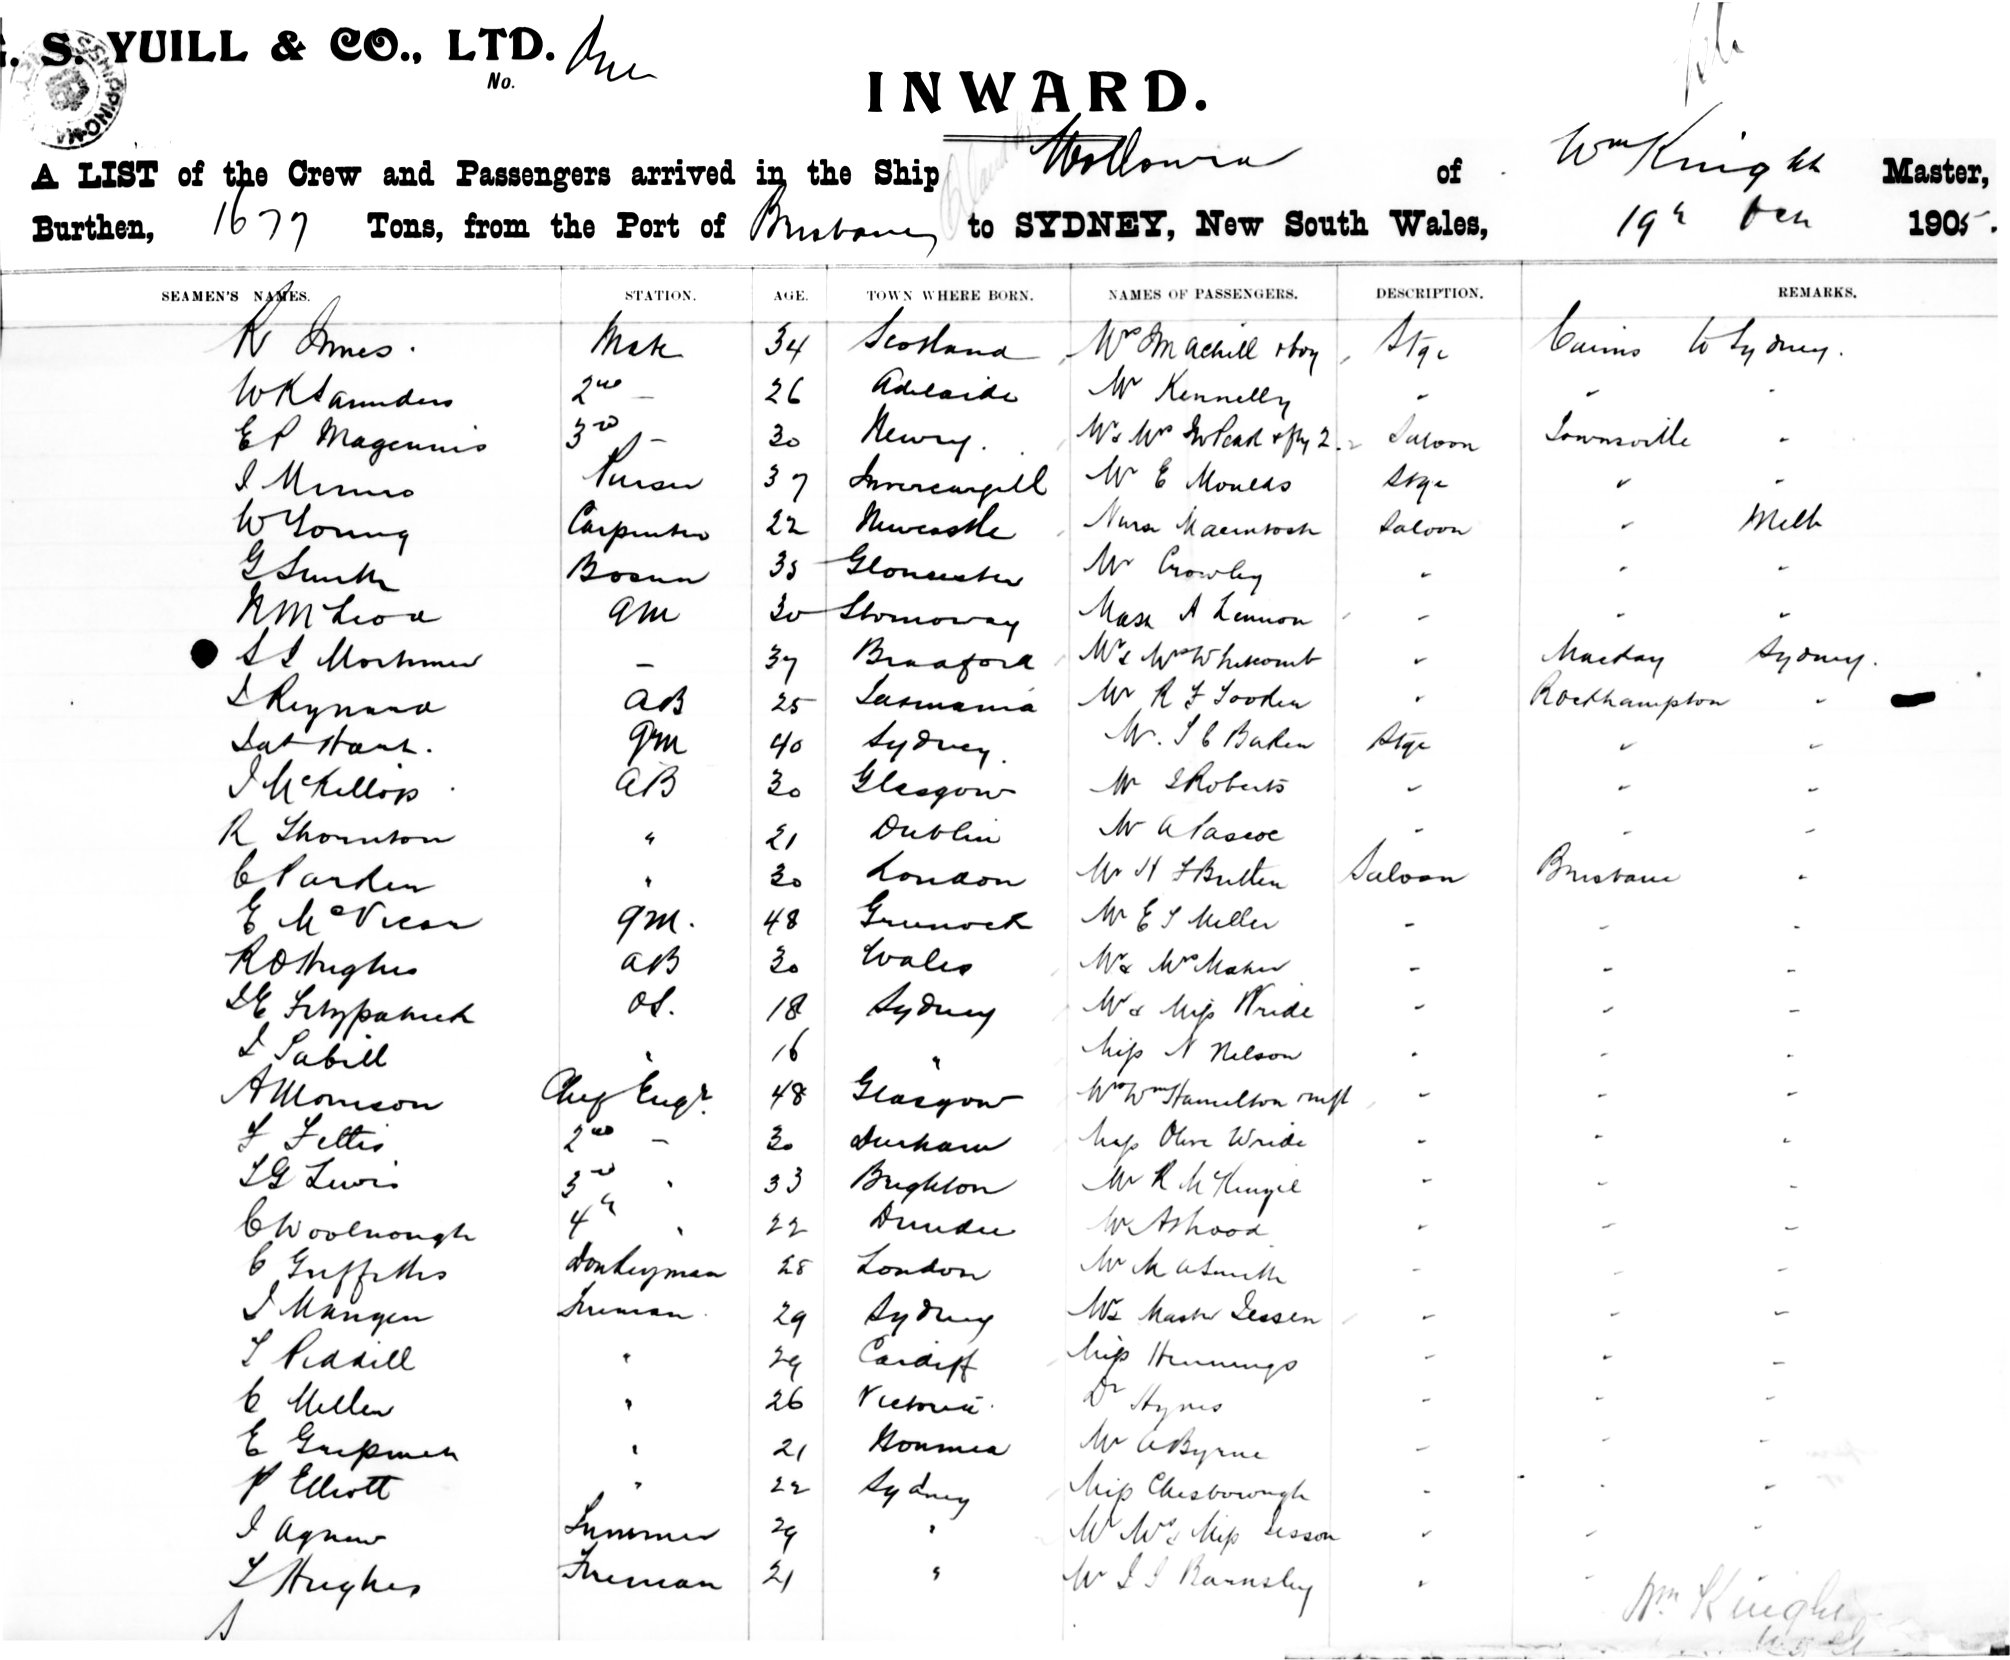 . S. YUILL & CO., LTD.
No.
INWARD.
A LIST of the Crew and Passengers arrived in the Ship Wollowra of Wm Knight Master,
Burthen, 1677 Tons, from the Port of Brisbane to SYDNEY, New South Wales, 19th 1905.
SEAMEN'S NAMES. STATION. AGE. TOWN WHERE BORN. NAMES OF PASSENGERS. DESCRIPTION. REMARKS.
R Innes Mate 34 Scotland Mrs & boy Stge Cairns to Sydney.
W K Saunders 2nd - 26 Adelaide Mr Kennelly " " "
E P Magennis 3rd - 30 Newry. Mr & Mrs & fly 2 Saloon Townsville "
J Purser 37 Invercargill Mr E Moulds Stge " "
W Young Carpenter 22 Newcastle Nurse Macintosh Saloon " Melb
G Smith Bosun 35 Gloucester Mr Crowley " " "
N McLeod QM 30 Stornoway A Lennon " " "
S J Mortimer - 37 Bradford Mr & Mrs Whitcomb " Mackay Sydney.
J Reynard AB 25 Tasmania Mr R F " Rockhampton "
Hart. QM 40 Sydney. Mr. J C Baker Stge " "
J McKillop AB 30 Glasgow Mr J Roberts " " "
R Thornton " 21 Dublin Mr A Pascoe " " "
C Parker " 30 London Mr H F Britten Saloon Brisbane "
E McVicar QM. 48 Greenock Mr E S Miller " " "
R O Hughes AB 30 Wales Mr & Mrs Maher " " "
J E Fitzpatrick OS. 18 Sydney Mr & Miss Wride " " "
J Cahill " 16 " Miss N Nelson " " "
A Morrison Chief Engr. 48 Glasgow Mrs Wm Hamilton " " "
F Fettis 2nd - 30 Durham Miss Olive Wride " " "
T G Lewis 3rd " 33 Brighton Mr R McKenzie " " "
C Woolnough 4th " 22 Dundee Mr " " "
C Griffiths Donkeyman 28 London Mr M A Smith " " "
J Mangen Fireman 29 Sydney Mr & Master Jessen " " "
T Riddell " 29 Cardiff Miss Hennings " " "
C Miller " 26 Victoria Dr Hynes " " "
E " 21 Noumea Mr A Byrne " " "
P Elliott " 22 Sydney Miss Chesborough " " "
J Agnew Trimmer 29 " Mr Mrs & Miss " " "
T Hughes Fireman 21 " Mr J J Barnsley " "
Wm Knight